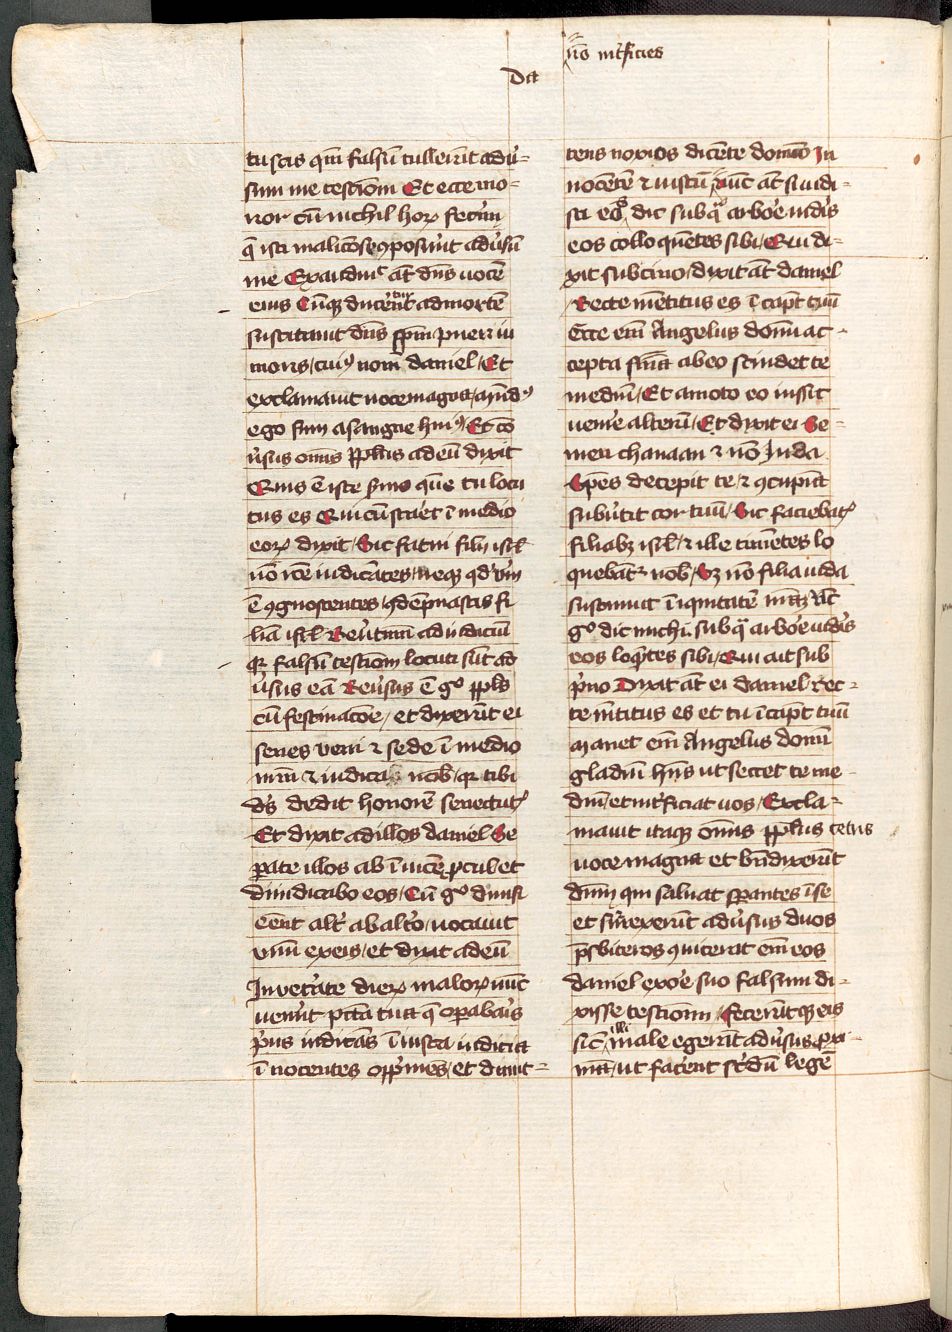 n̄o īt̄ficies
Da
tu scis qm̄ falsū tulleīrt adu᷒=
sum me testīom Et ecce mo=
rior cū nichil hoꝝ fecim
q̄ isti malicōse ꝯposuīt adūsū
me Exaudiuᶜ at̄ dn̄s uocē
eius Cūqꝫ ducērtur ad mortē
suscitauit dn̄s sp̄m pueri iu
nioris/ cuiꝰ nom̄ daniel/ Et
exclamauit uoce magna/ mūdꝰ
ego sum a sangue huiꝰ/ Et cō
ūsus om̄is pp̄lus ad eū dixit
Quis ē iste s̄mo que̅ tu locu
tus es Qui cū staret ī medio
eoꝝ dixit/ Sic fatui filij isr̄l
nō icē iudicātes/ neqꝫ qd̕ vm̄
ē ꝯgnoscentes/ ꝯdēpnastis fi
liā isr̄l Reūtimī ad iudiciū
qꝛ falsū testīom locuti sūt ad
ūsus eā Reūsus ē gͦ pp̄ls
cū festinacōe/ et dixerūt ei
senes veni ⁊ sede ī medio
nrm̄ ⁊ iudica nob̄/ qꝛ tibi
ds̄ dedit honorē senectutꝭ
Et dixit ad illos daniel Se
ꝑate illos ab īuicē ꝓcul et
diiudicabo eos/ Cū gͦ diuisi
eēnt alt̄ ab alt̄o/ uocauit
vnū ex eis/ et dixit ad eū
Inuet̄ate dieꝝ maloꝝ nūc
uenīt pctā tua q̄ oꝑabaīs
p̄us iudicās īiusta iudicia
īnocentes opp̄mēs/ et dimit=
tens noxios dicēte domīo In
nocētē ⁊ iustū Nūc at̄ si uidi=
sti eoˢ, dic sub qͣ arboē uidīs
eos colloquētes sibi/ Qui di=
xit sub cino/ dixit at̄ daniel
Recte mētitus es ī capt̄ tuū
Ecce em̄ Angelus domī ac=
cepta snīa ab eo scindet te
mediū/ Et amoto eo iussit
uenīe alterū/ Et dixit ei Se=
men chanaan ⁊ nō Iuda
Spēs decepit te/ ⁊ ꝯcupīa
subūtit cor tuū/ Sic faciebatꝭ
filiabꝫ isr̄l/ ⁊ ille timētes lo
quebant᷑ nob̄/ Sꝫ nō filia iuda
sustinuit īiquitatē vr̄aꝫ Nc̄
gͦ dic michi sub qͣ arboē uidīs
eos loqn̄tes sibi/ Qui ait sub
p̄no Dixit at̄ ei daniel rec=
te mētitus es et tu ī capt̄ tuū
Manet em̄ Angelus domī
gladiū hn̄s ut secet te me=
diū/ et īt̄ficiat uos/ Excla=
mauit itaqꝫ om̄is pp̄lus cetus
uoce magna et bn̄dixerūt
deū qui saluat sꝑantes ī se
et surrexerūt adūsus duos
p̄sbiteros ꝯuicerat em̄ eos
daniel ex oē suo falsum di=
xisse testīom/ feceruntqꝫ eis
sic̄ illi male egerāt adūsus ꝓxi=
mā/ ut facēnt scd̄m legē